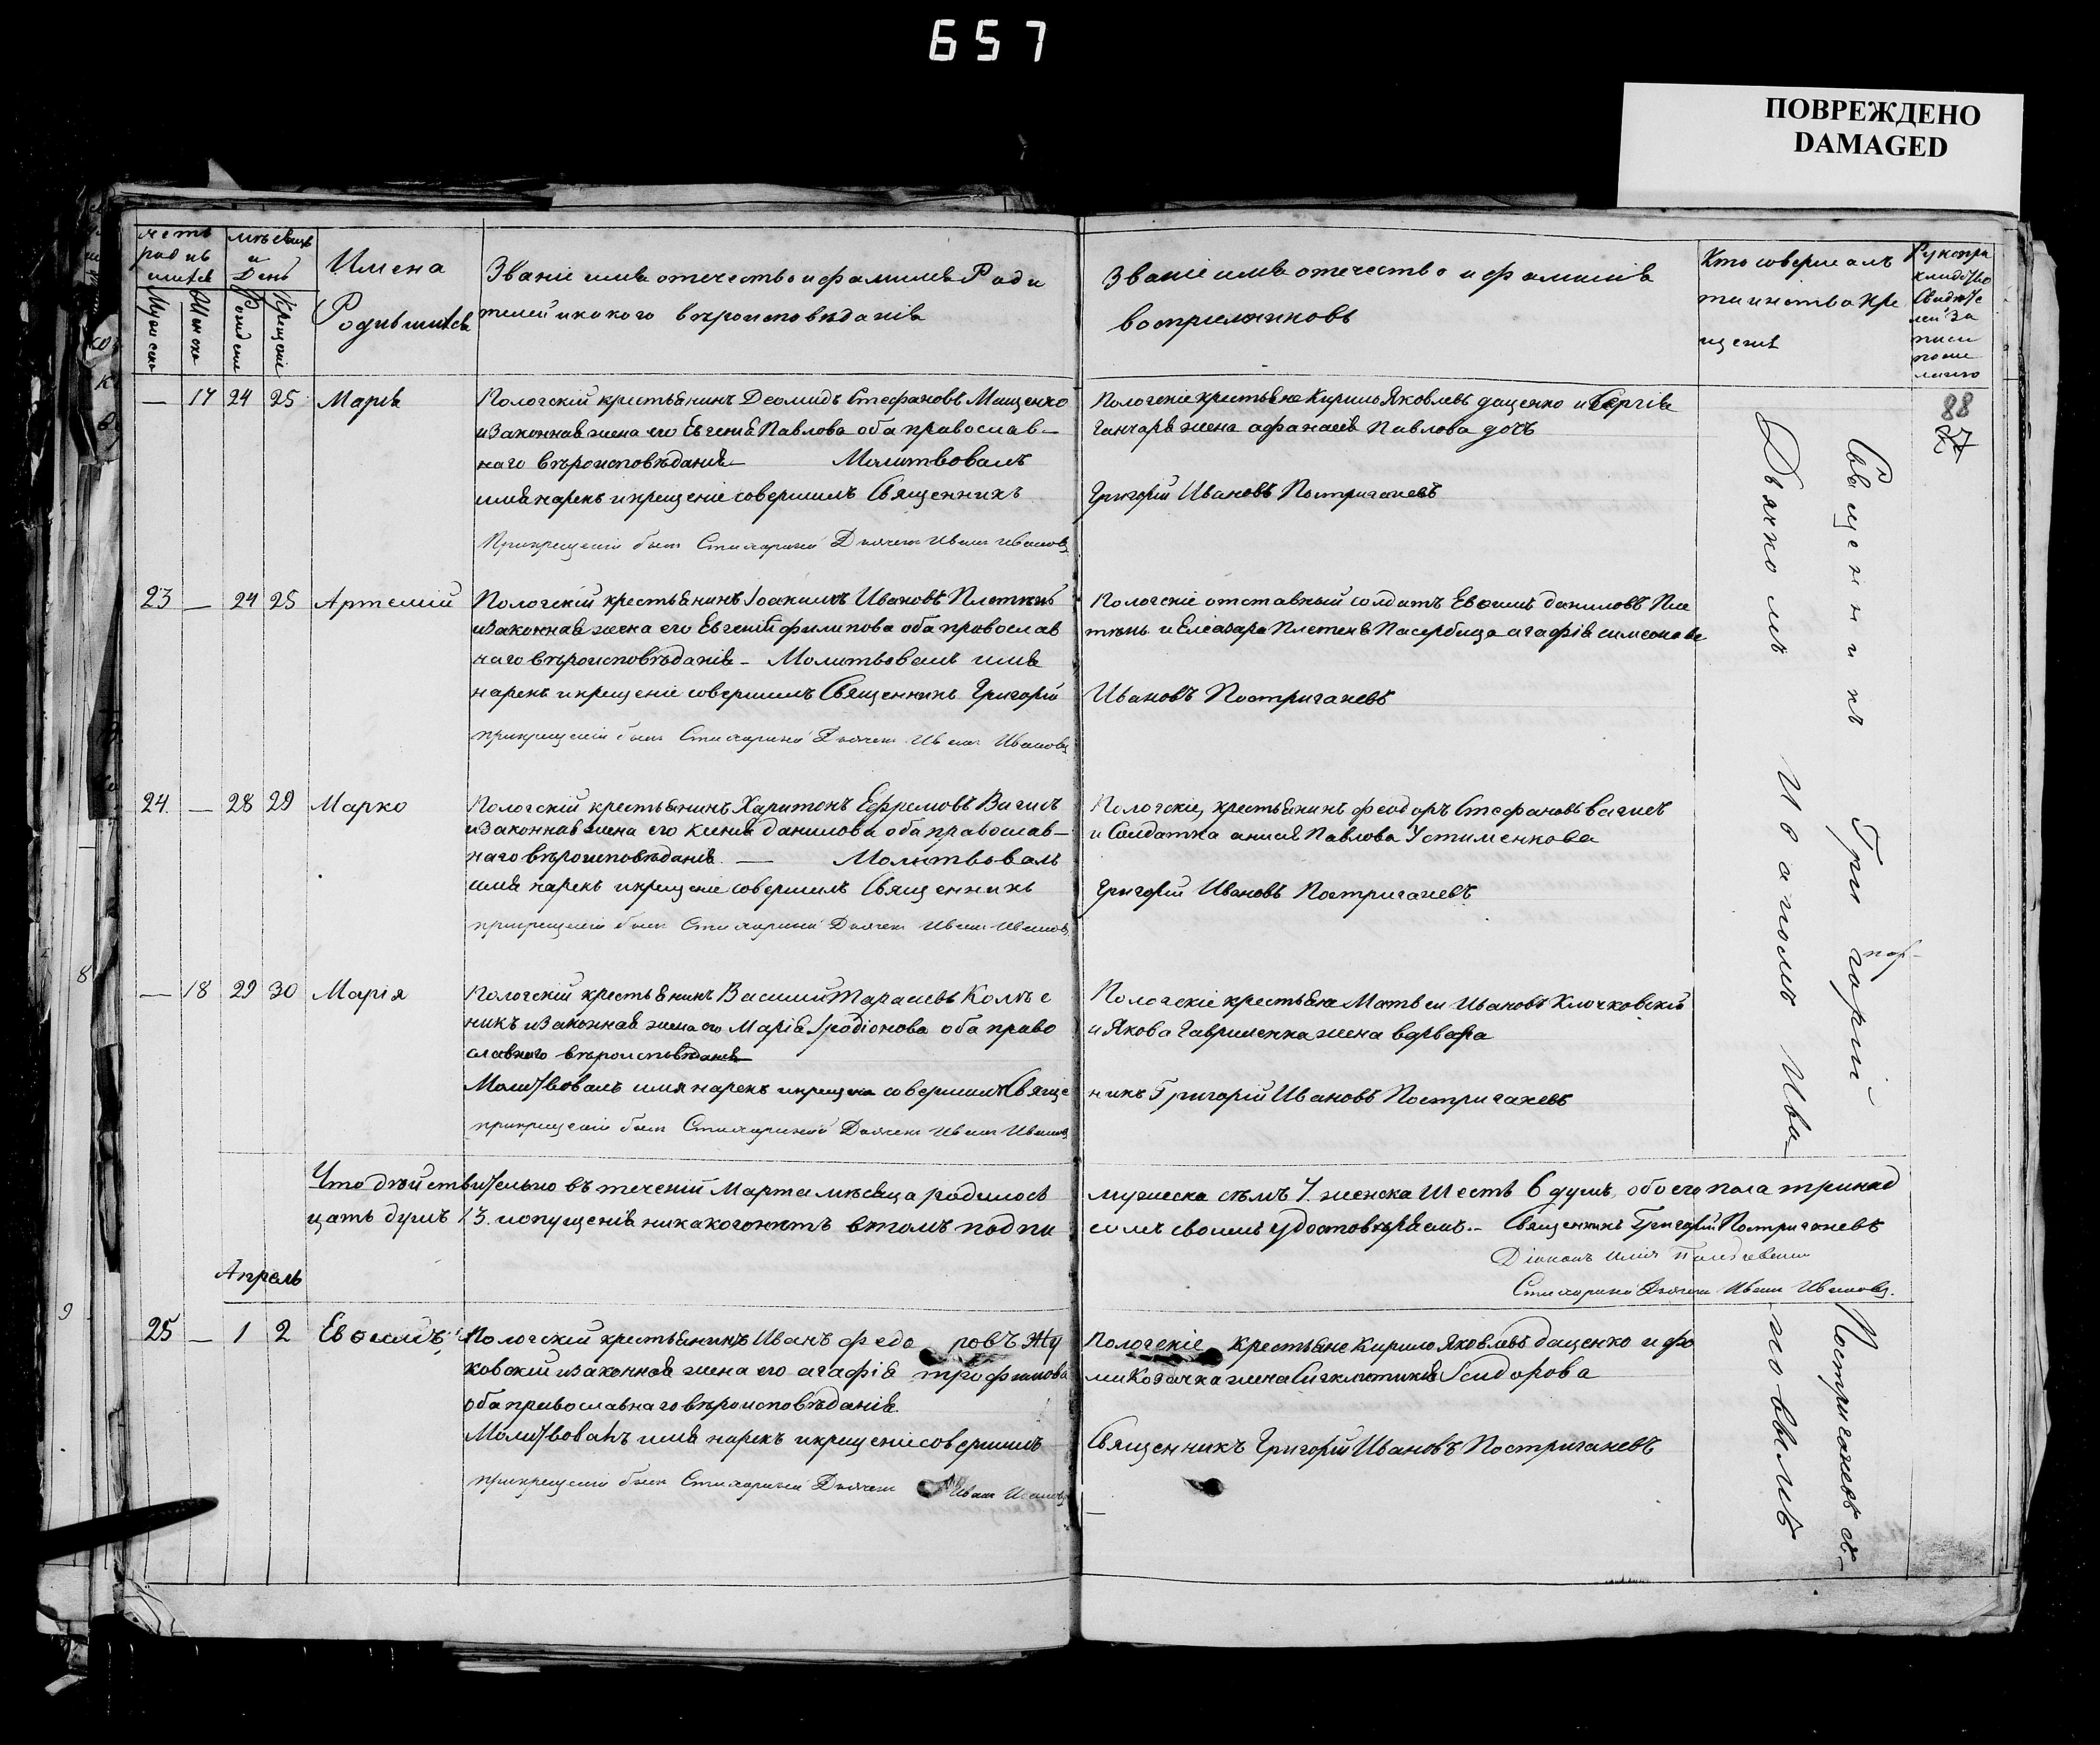 657
ПОВРЕЖДЕНО
DAMAGED
Имена
Родившихся
Званіе имя отечество и фамилія Роди
телей и какого вѣроисповѣданія
Званіе имя отечество и фамилія
воспріемниковъ
Кто совершалъ
таинство кре
щенія
88
— 17 24 25 Марія
Пологскій крестьянинъ Деомидъ Стефановъ Мащенко
и законная жена его Евгенія Павлова оба православ-
наго вѣроисповѣданія — Молитвовалъ
имя нарекъ и крещеніе совершилъ Священникъ
Прикрещеніи былъ Стихарный Дьячекъ Иванъ Ивановъ
Пологскіе крестьяне Кирило Яковлевъ даценко и Сергія
Ганчаря жена афанасія Павлова дочь
Григорій Ивановъ Постригачевъ
23 — 24 25 Артемій
Пологскій крестьянинъ Іоакимъ Ивановъ Плетень
и законная жена его Евгенія филипова оба православ
наго вѣроисповѣданія — Молитвовалъ имя
нарекъ и крещеніе совершилъ Священникъ Григорій
прикрещеніи былъ Стихарный Дьячекъ Иванъ Ивановъ
Пологскіе отставный солдатъ Евѳимъ даниловъ Пле
тень и Елеазара Плетеня Пасербица агафія симеонова
Ивановъ Постригачевъ
24. — 28 29 Марко
Пологскій крестьянинъ Харитонъ Ефремовъ Вагисъ
и законная жена его ксенія данилова оба православ—
наго вѣроисповѣданія. — Молитвовалъ
имя нарекъ и крещеніе совершилъ Священникъ
прикрещеніи былъ Стихарный Дьячекъ Иванъ Ивановъ
Пологскіе, крестьянинъ феодоръ Стефановъ вагисъ
и Солдатка анисія Павлова Устименкова
Григорій Ивановъ Постригачевъ
— 18 29 30 Марія
Пологскій крестьянинъ Василій Тарасіевъ Колѣс
никъ и законная жена его Марія Іродіонова оба право
славнаго вѣроисповѣданія
Молитвовалъ имя нарекъ и крещеніе совершилъ Свяще
прикрещеніи былъ Стихарный Дьячекъ Иванъ Ивановъ
Пологскіе крестьяне Матвей Ивановъ Клочковскій
и Якова Гавриленка жена варвара
никъ Григорій Ивановъ Постригачевъ
Что дѣйствительно въ теченіи Марта мѣсяца родилось
мужеска семъ 7. женска Шесть 6 душъ, обоего пола тринад
цать душъ 13. и опущенія никакого нѣтъ въ томъ подпи
сомъ своимъ удостовѣряемъ. — Священникъ Григорій Постригачевъ
Стихарный Дьячекъ Иванъ Ивановъ.
Апрель
25 — 1 2 Евѳимій
Пологскій крестьянинъ Иванъ федо ровъ Жу
ковскій и законная жена его агафія трофимова
оба православнаго вѣроисповѣданія.
Молитвовалъ имя нарекъ и крещеніе совершилъ
прикрещеніи былъ Стихарный Дьячекъ Иванъ Ивановъ
Пологскіе крестьяне Кирило Яковлевъ даценко и фо
ми Козачка жена Сигклитикія Ісидорова
Священникъ Григорій Ивановъ Постригачевъ
Священникъ Григорій Постригачевъ съ
Дьячкомъ Иоанномъ Ивановымъ
8
9